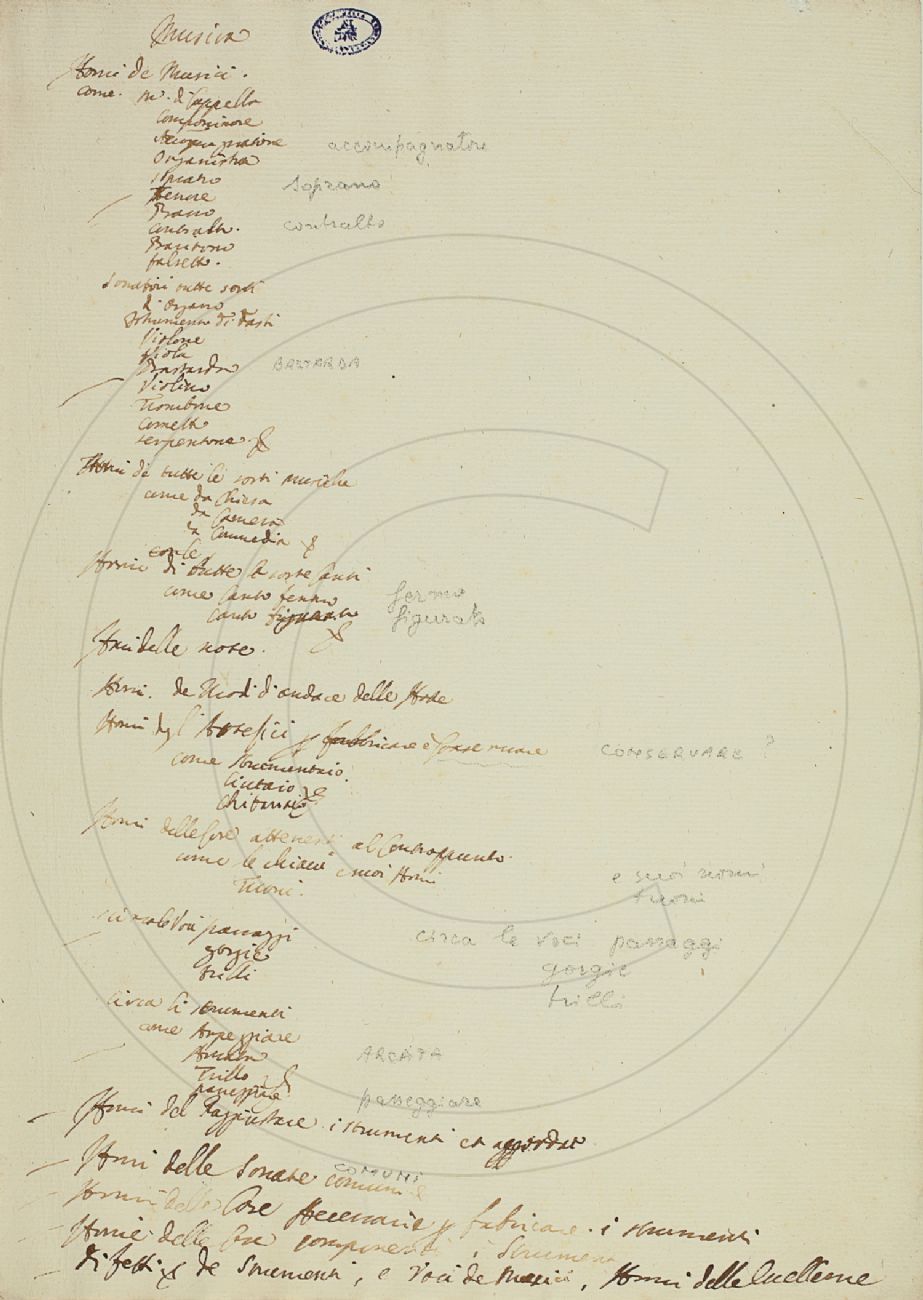 Musica
Nomi de Musici.
come. M.º di Cappella
Componitore
Accompagnatore accompagnatore
Organista
Soprano soprano
Tenore
Basso
Contralto. contralto
Baritono
falsetto.
Sonatori tutte sorti
di organo
Strumento di Tasti
Violone
Viola
Bastarda BASTARDA
Violino
Trombone
Cornetto
serpentone. &
Nomi di tutte le sorti musiche
come da Chiesa
da Camera
da Commedia &
con le
Nomi di tutte le sorte canti
come Canto fermo fermo
Canto figurato figurato
&
Nomi delle note.
Nomi. de Modi d'andace delle Note
Nomi degl'Artefici p fabbricare e conservare CONSERVARE ?
come strumentaio.
Liutaio
Chitarraio &
Nomi delle Cose attenenti al Contrappunto.
come le chiavi e suoi Nomi e suoi nomi
Tuoni. tuoni
circa le Voci passaggi circa le voci passaggi
gorgie gorgie
trilli trilli
Circa li strumenti
come Arpeggiare
Arcata ARCATA
Trillo &
passeggiare passeggiare
Nomi del Raggiustare i strumenti et accordat
Nomi delle Sonate comuni COMUNI
Nomi delle Cose Necessarie p fabricare i strumenti
Nomi delle Cose componenti i Strumenti
difetti & de Strumenti, e Voci de Musici, Nomi delle